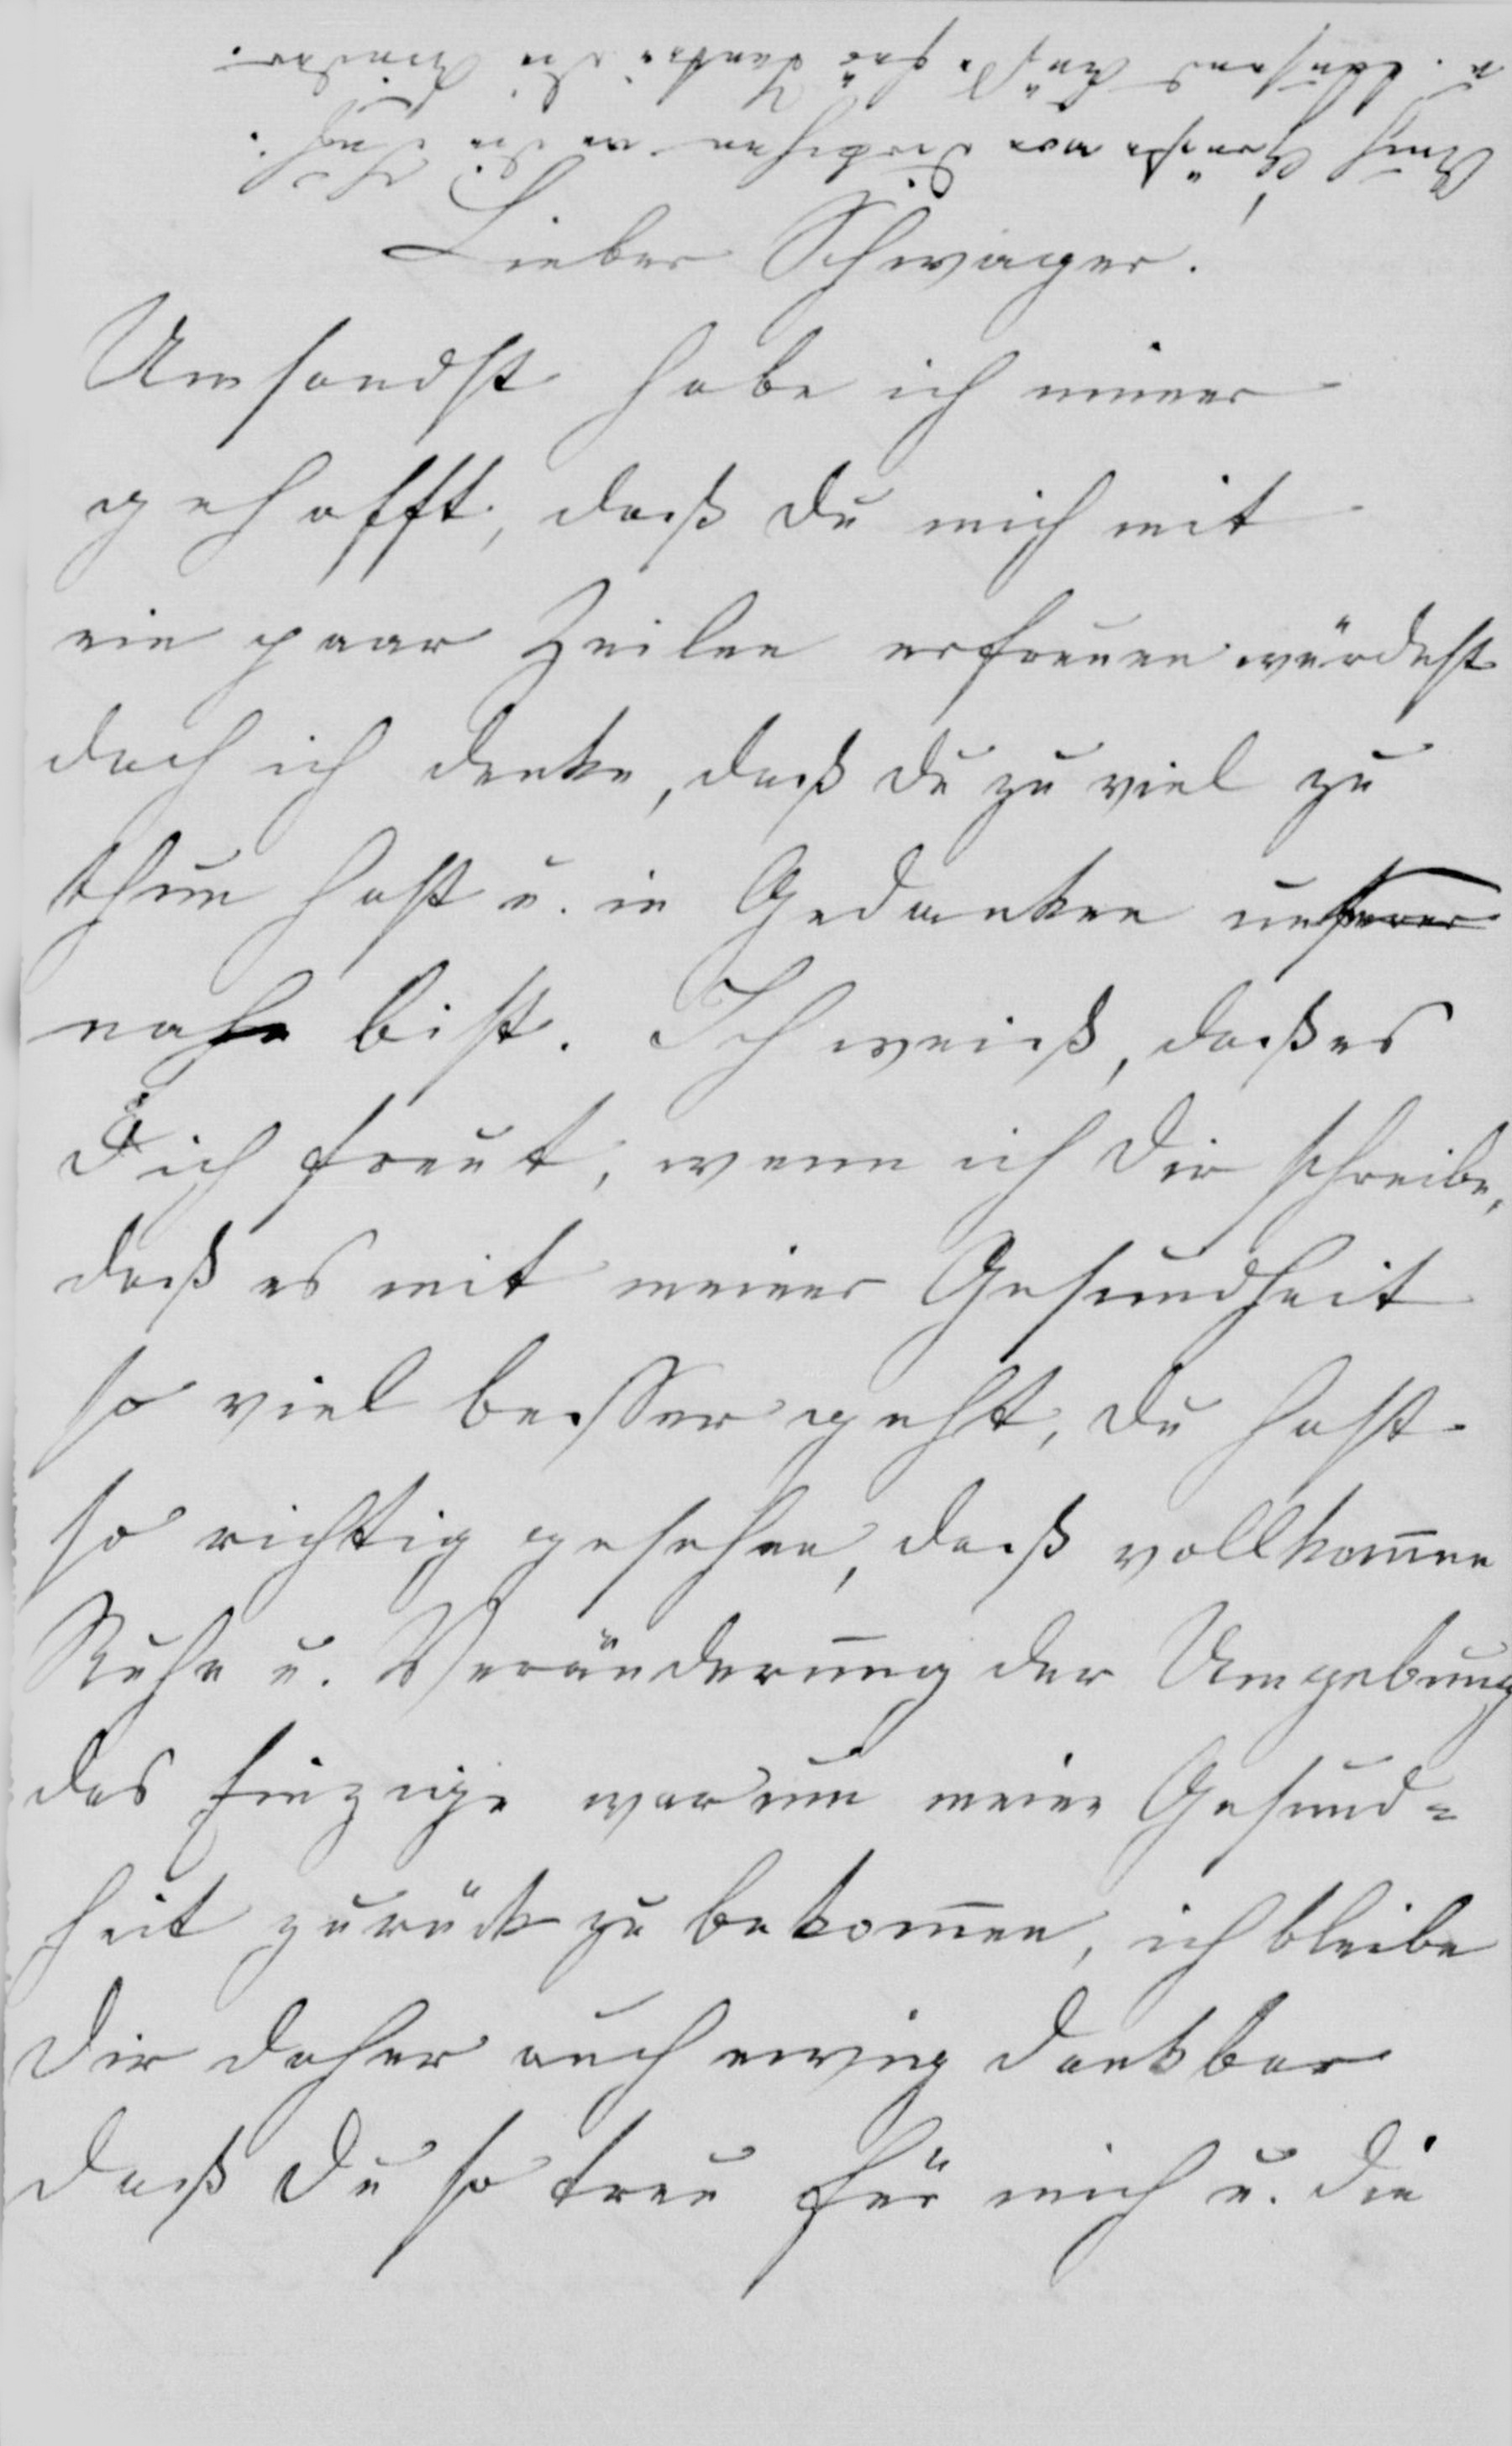 Lieber Schwager.
Umsondst habe ich immer
gehofft, daß Du mich mit
ein paar Zeilen erfreuen würdest
doch ich denke, daß Du zu viel zu
thun hast u. in Gedanken unserer
nahe bist. Ich weiß, daß es
Dich freut, wenn ich Dir schreibe,
daß es mit meiner Gesundheit
so viel besser geht, Du hast
so richtig gesehen, daß vollkom̄en
Ruhe u. Veränderung der Umgebung
das Einzige war um meine Gesund=
heit zurück zu bekom̄en, ich bleibe
Dir daher auch ewig dankbar
daß Du so treu für mich u. die